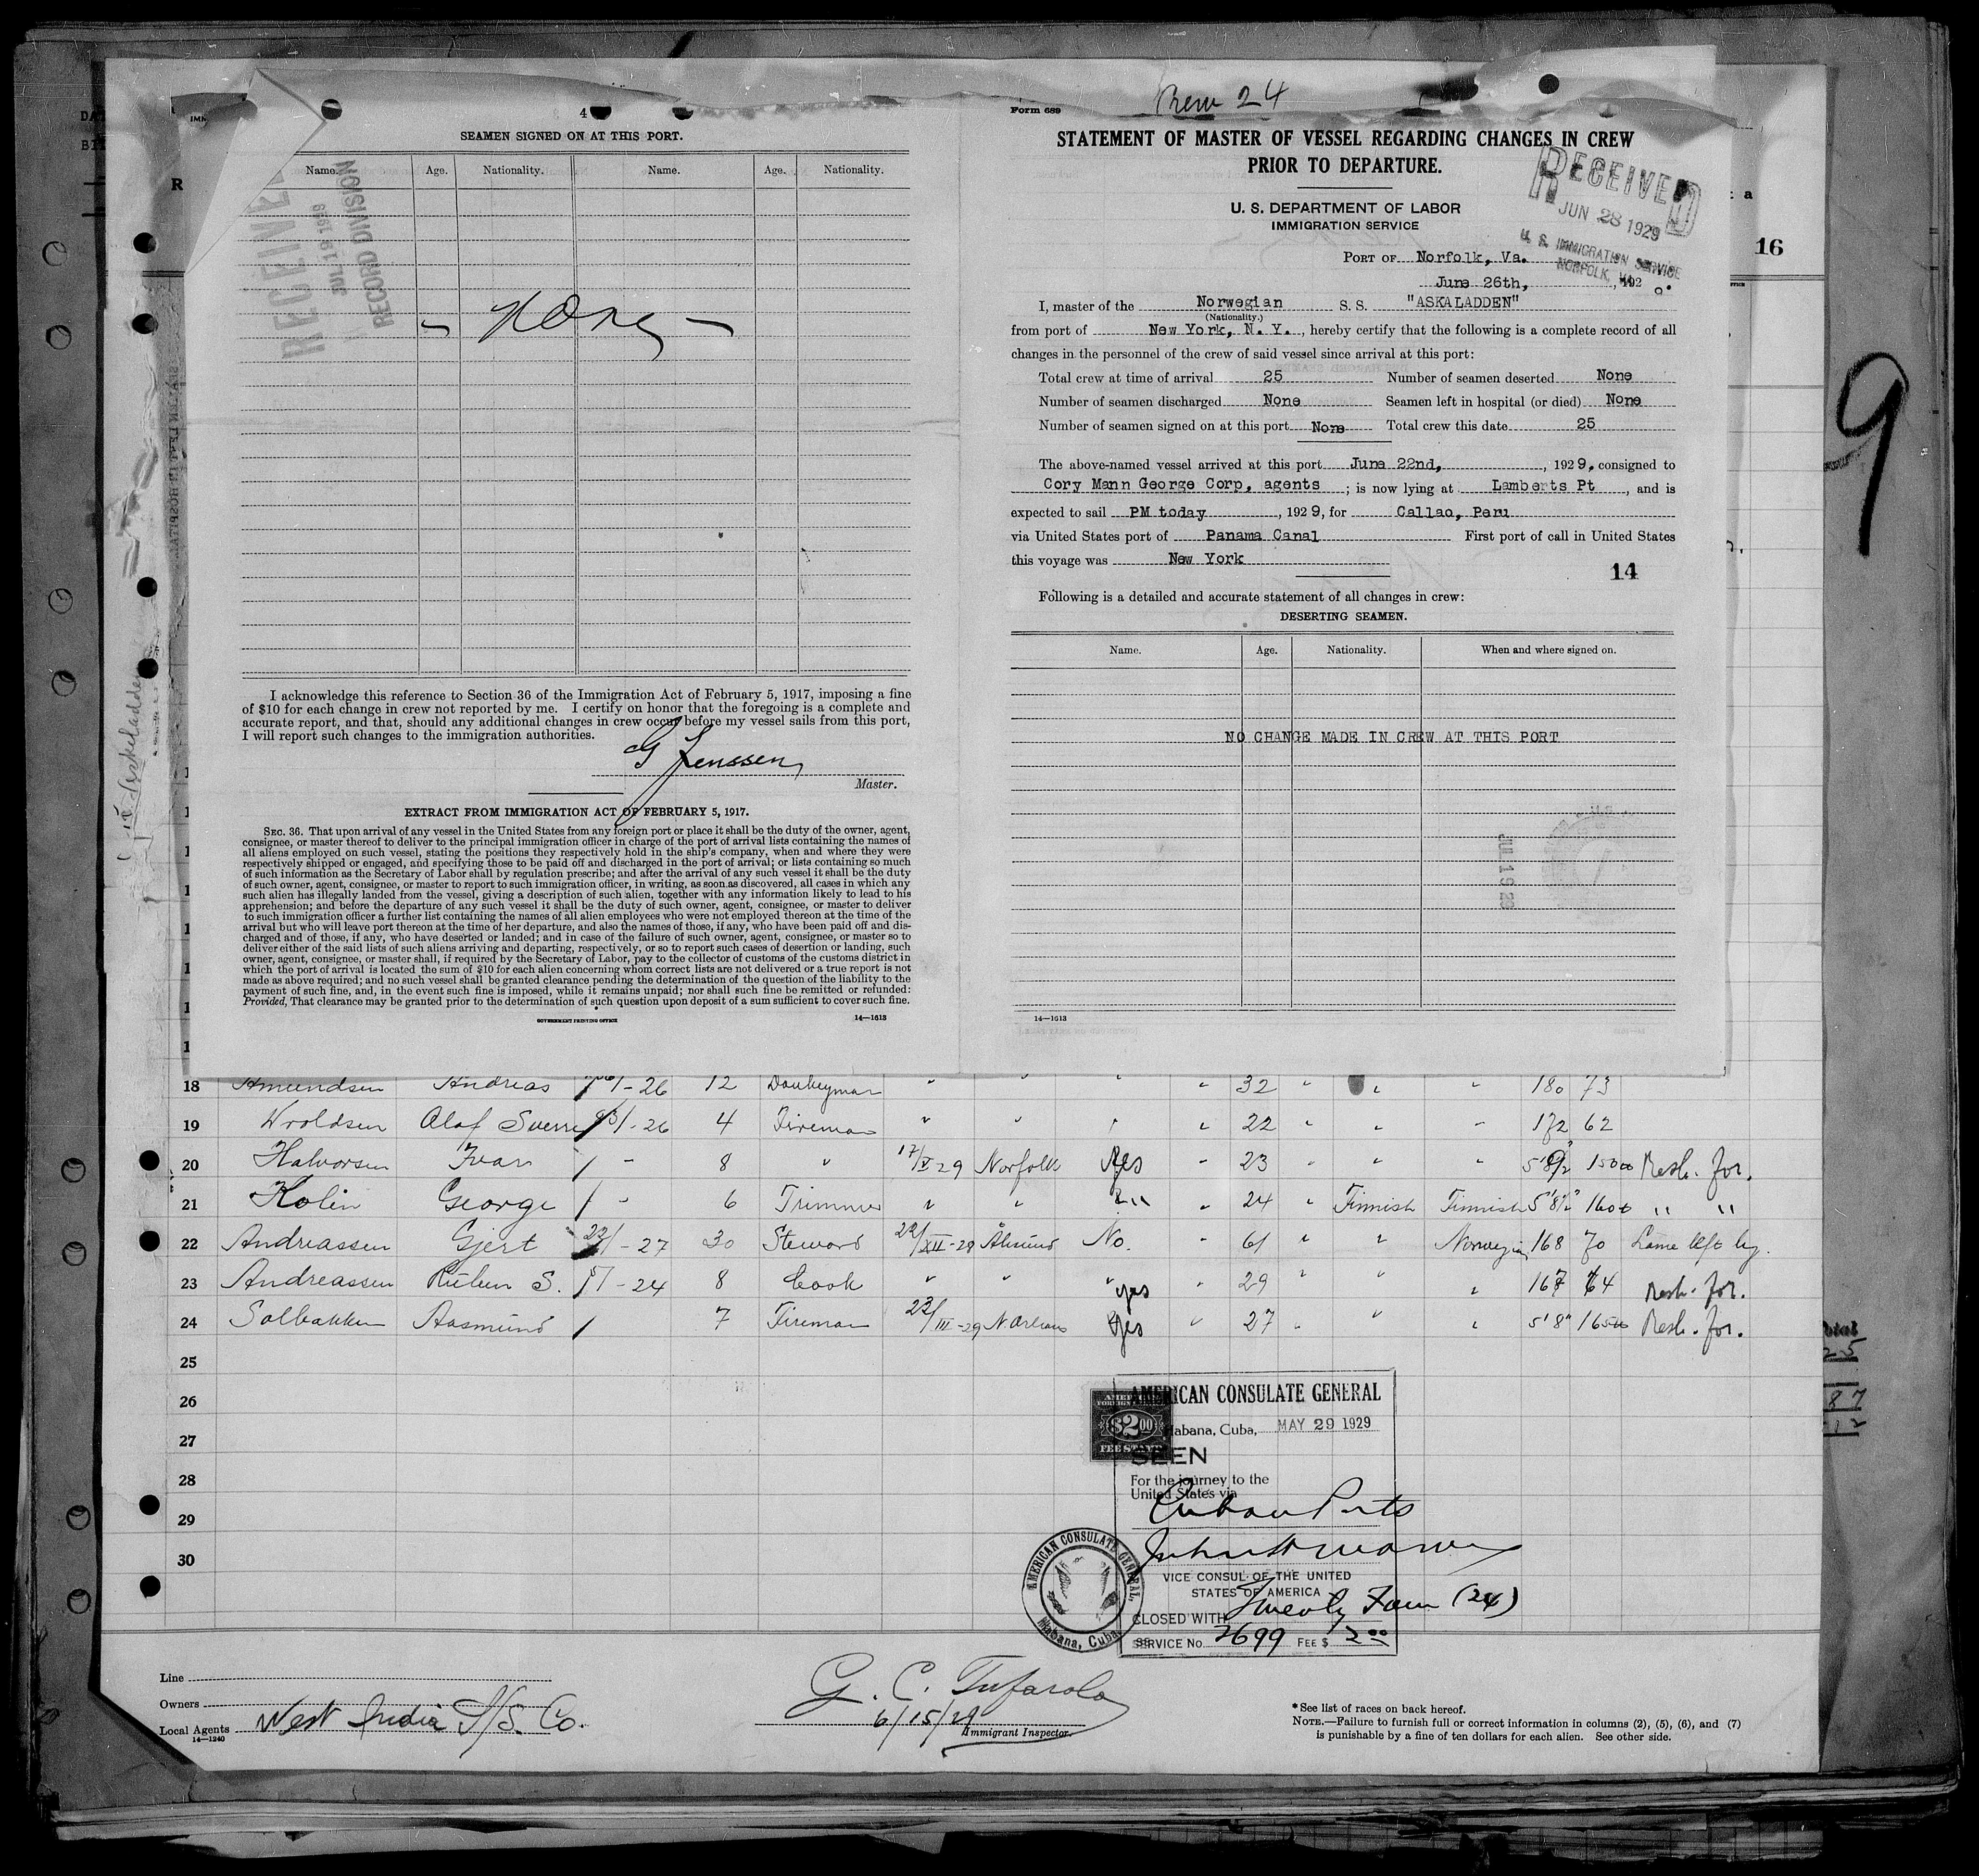 4
SEAMEN SIGNED ON AT THIS PORT.
Name. Age. Nationality. Name. Age. Nationality.
RECEIVED
JUL 19 1929
RECORD DIVISION
- None -
I acknowledge this reference to Section 36 of the Immigration Act of February 5, 1917, imposing a fine
of $10 for each change in crew not reported by me. I certify on honor that the foregoing is a complete and
accurate report, and that, should any additional changes in crew occur before my vessel sails from this port,
I will report such changes to the immigration authorities.
G Jenssen
Master.
EXTRACT FROM IMMIGRATION ACT OF FEBRUARY 5, 1917.
SEC. 36. That upon arrival of any vessel in the United States from any foreign port or place it shall be the duty of the owner, agent,
consignee, or master thereof to deliver to the principal immigration officer in charge of the port of arrival lists containing the names of
all aliens employed on such vessel, stating the positions they respectively hold in the ship's company, when and where they were
respectively shipped or engaged, and specifying those to be paid off and discharged in the port of arrival; or lists containing so much
of such information as the Secretary of Labor shall by regulation prescribe; and after the arrival of any such vessel it shall be the duty
of such owner, agent, consignee, or master to report to such immigration officer, in writing, as soon as discovered, all cases in which any
such alien has illegally landed from the vessel, giving a description of such alien, together with any information likely to lead to his
apprehension; and before the departure of any such vessel it shall be the duty of such owner, agent, consignee, or master to deliver
to such immigration officer a further list containing the names of all alien employees who were not employed thereon at the time of the
arrival but who will leave port thereon at the time of her departure, and also the names of those, if any, who have been paid off and dis-
charged and of those, if any, who have deserted or landed; and in case of the failure of such owner, agent, consignee, or master so to
deliver either of the said lists of such aliens arriving and departing, respectively, or so to report such cases of desertion or landing, such
owner, agent, consignee, or master shall, if required by the Secretary of Labor, pay to the collector of customs of the customs district in
which the port of arrival is located the sum of $10 for each alien concerning whom correct lists are not delivered or a true report is not
made as above required; and no such vessel shall be granted clearance pending the determination of the question of the liability to the
payment of such fine, and, in the event such fine is imposed, while it remains unpaid; nor shall such fine be remitted or refunded:
Provided, That clearance may be granted prior to the determination of such question upon deposit of a sum sufficient to cover such fine.
GOVERNMENT PRINTING OFFICE 14—1613
Form 689
24
STATEMENT OF MASTER OF VESSEL REGARDING CHANGES IN CREW
PRIOR TO DEPARTURE.
RECEIVED
JUN 28 1929
U. S. IMMIGRATION SERVICE
NORFOLK, VA.
U. S. DEPARTMENT OF LABOR
IMMIGRATION SERVICE
PORT OF Norfolk, Va.
June 26th, , 192
I, master of the Norwegian S. S. "ASKALADDEN"
(Nationality.)
from port of New York, N. Y. , hereby certify that the following is a complete record of all
changes in the personnel of the crew of said vessel since arrival at this port:
Total crew at time of arrival 25 Number of seamen deserted None
Number of seamen discharged None Seamen left in hospital (or died) None
Number of seamen signed on at this port None Total crew this date 25
The above-named vessel arrived at this port June 22nd, , 1929, consigned to
Cory Mann George Corp, agents ; is now lying at Lamberts Pt , and is
expected to sail PM today , 1929, for Callao, Peru
via United States port of Panama Canal First port of call in United States
this voyage was New York
14
Following is a detailed and accurate statement of all changes in crew:
DESERTING SEAMEN.
Name. Age. Nationality. When and where signed on.
NO CHANGE MADE IN CREW AT THIS PORT
14—1613
16
9
18 Amundsen Andreas - 26 12 Donkeyman " " " " 32 " " " 180 73
19 Wroldsen Olaf Sverre - 26 4 Fireman " " " " 22 " " " 172 62
20 Halvorsen Ivar - 8 " 17/V 29 Norfolk Yes " 23 " " " 5'8½ 150 Resh. for.
21 Kolin George - 6 Trimmer " " " " 24 " Finnish Finnish 5'8½ 160 " "
22 Andreassen Gjert - 27 30 Steward XII-28 Ålesund No. " 61 " " Norwegian 168 70 Lame left leg.
23 Andreassen Ruben S. - 24 8 Cook " " yes " 29 " " " 167 64 Resh. for.
24 Solbakken Aasmund 7 Fireman 23/III-29 N.Orleans Yes " 27 " " " 5'8" 165 Resh. for.
25
26
27
28
29
30
AMERICAN CONSULATE GENERAL
Habana, Cuba, MAY 29 1929
$2.00
FEE STAMP
SEEN
For the journey to the
United States via
Cuban Ports
VICE CONSUL OF THE UNITED
STATES OF AMERICA
CLOSED WITH Twenty Four (24)
SERVICE No. 2699 FEE $ 2.00
AMERICAN CONSULATE GENERAL,
Habana, Cuba
Line
Owners
Local Agents West India S/S. Co.
14—1240
G. C. Tufarolo
6/15/29
Immigrant Inspector.
* See list of races on back hereof.
NOTE.—Failure to furnish full or correct information in columns (2), (5), (6), and (7)
is punishable by a fine of ten dollars for each alien. See other side.